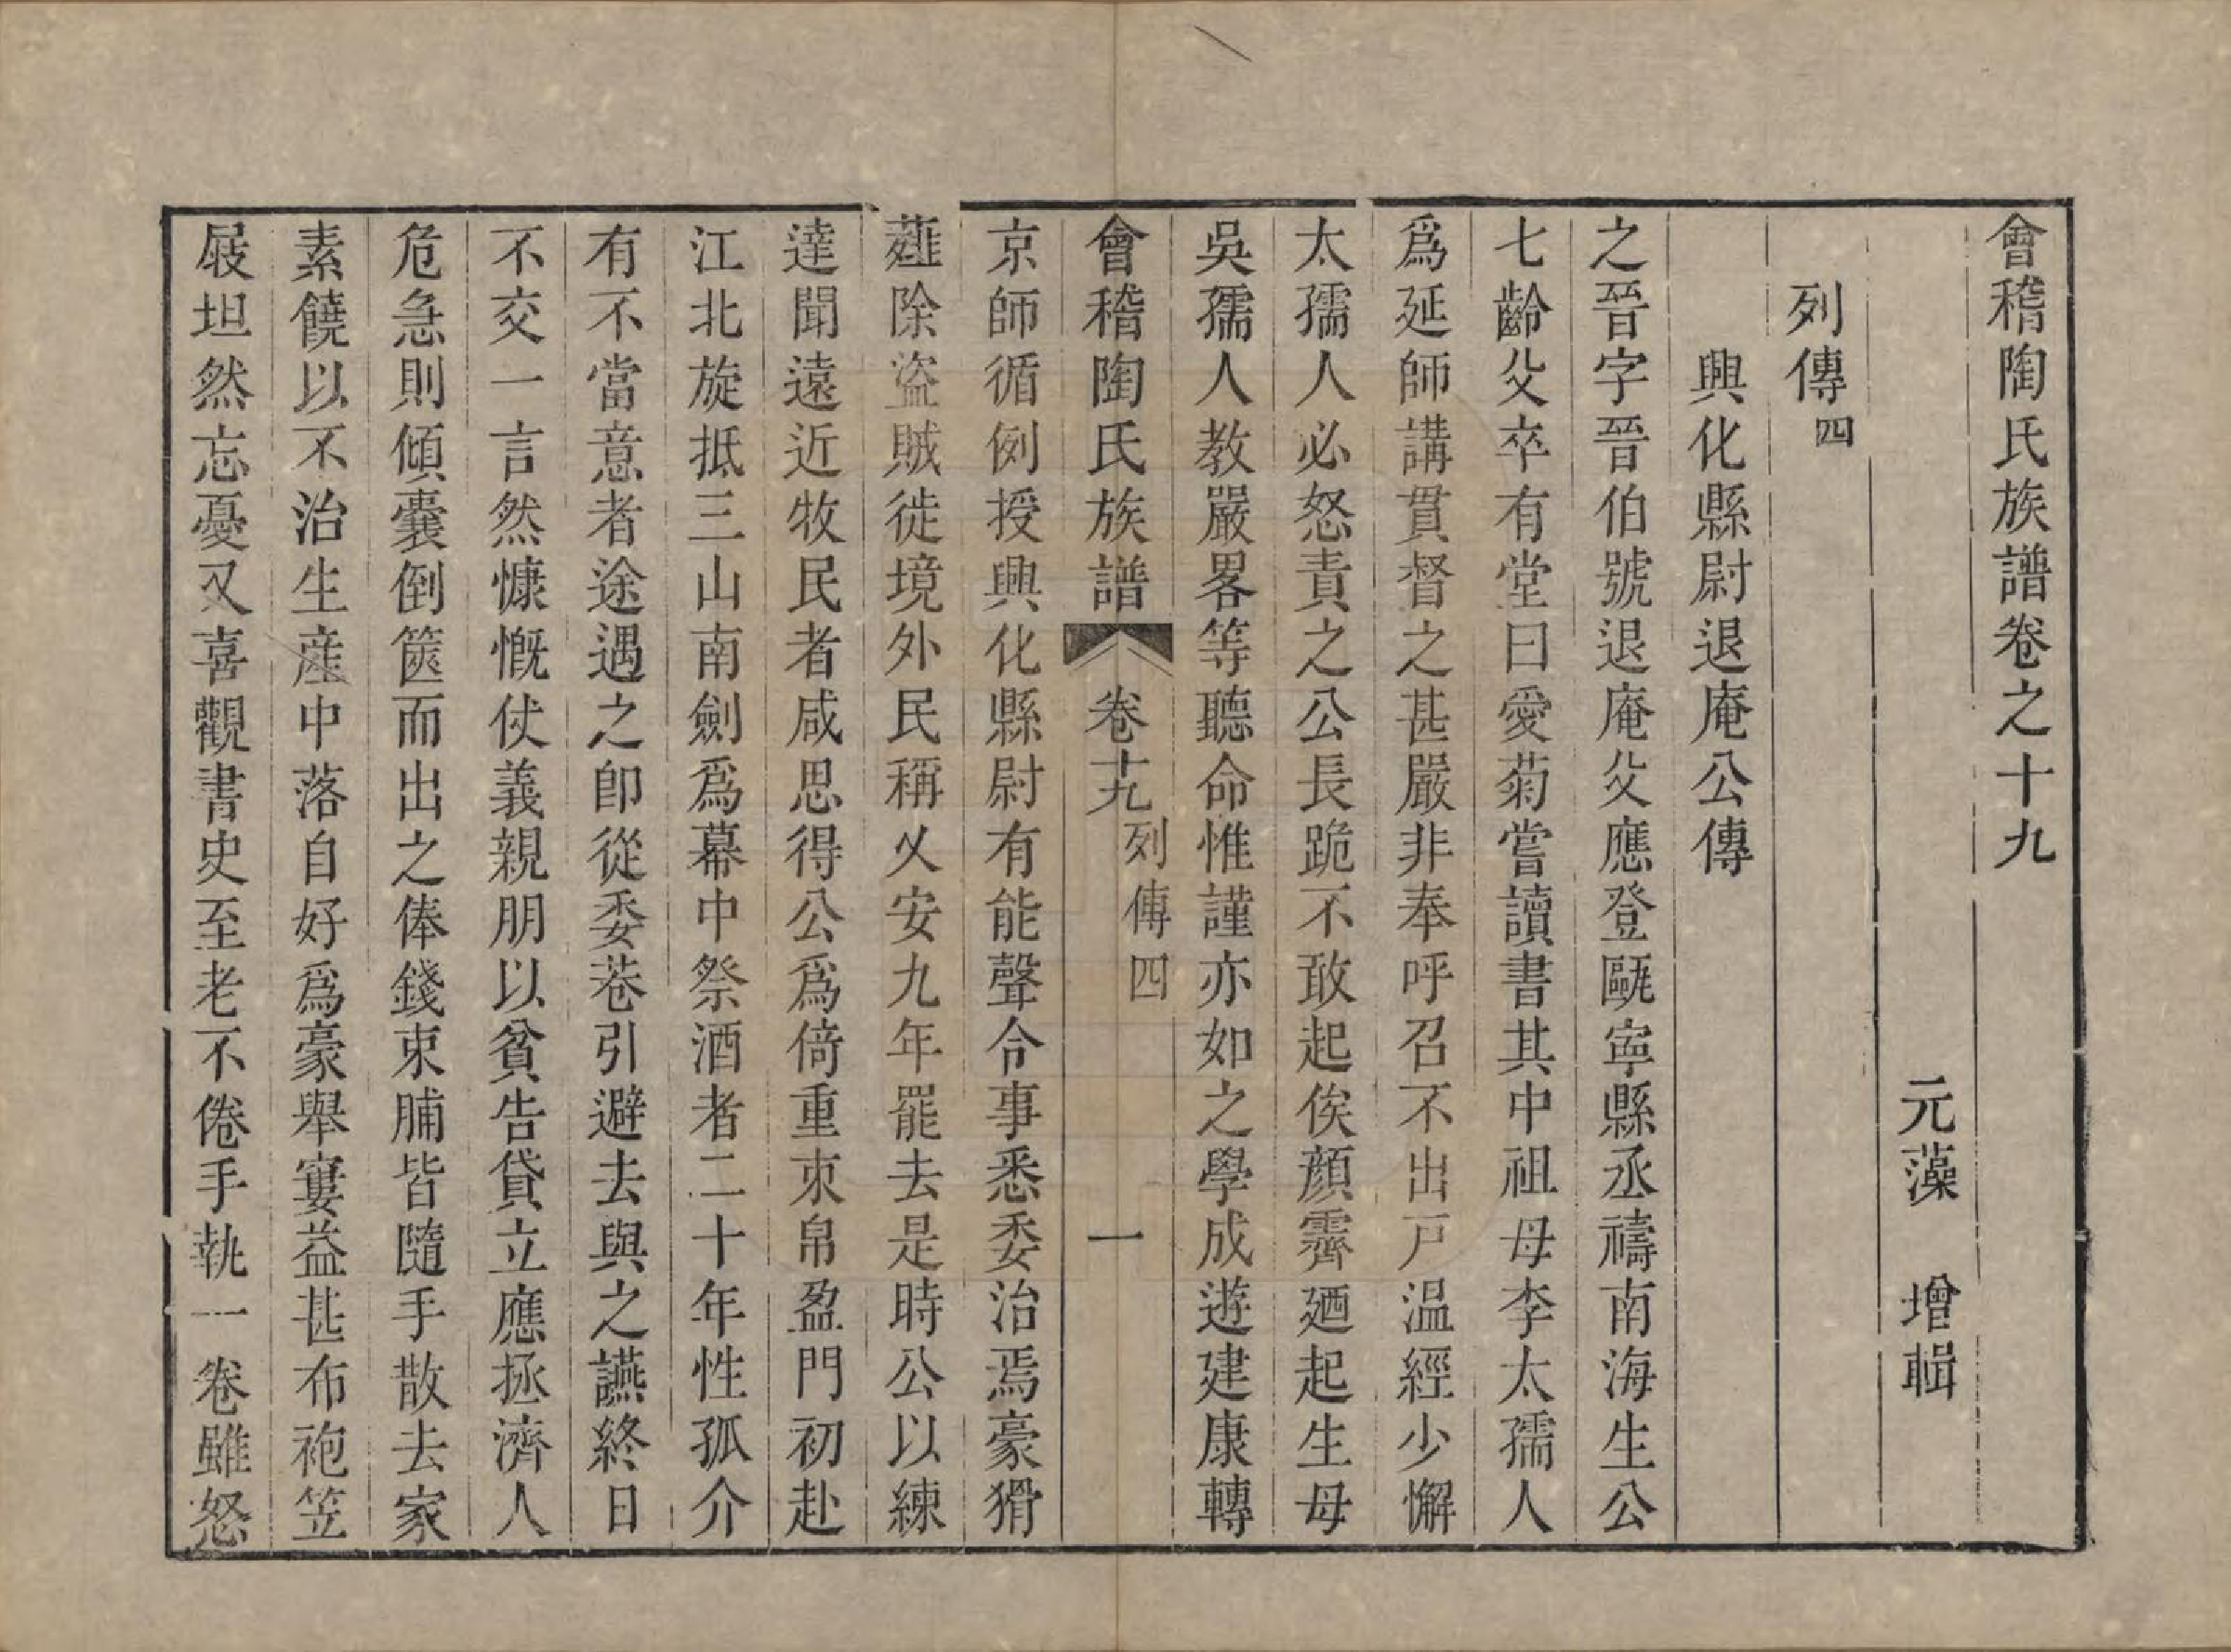 會稽陶氏族譜卷之十九
元藻　增輯
列傳四
興化縣尉退庵公傳
之晉字晉伯號退庵父應登甌寧縣丞禱南海生公
七齡父卒有堂曰愛菊嘗讀書其中祖母李太孺人
爲延師講貫督之甚嚴非奉呼召不出戸温經少懈
太孺人必怒責之公長跪不敢起俟顔霽廼起生母
吳孺人教嚴畧等聽命惟謹亦如之學成遊建康轉
會稽陶氏族譜　卷十九　列傳四　一
京師循例授興化縣尉有能聲令事悉委治焉豪猾
薙除盜賊徙境外民稱乂安九年罷去是時公以練
達聞遠近牧民者咸思得公爲倚重束帛盈門初赴
江北旋抵三山南劍爲幕中祭酒者二十年性孤介
有不當意者途遇之卽從委巷引避去與之讌終日
不交一言然慷慨仗義親朋以貧告貸立應拯濟人
危急則傾囊倒篋而出之俸錢束脯皆隨手散去家
素饒以不治生産中落自好爲豪舉寠益甚布袍笠
屐坦然忘憂又喜觀書史至老不倦手執一卷雖怒